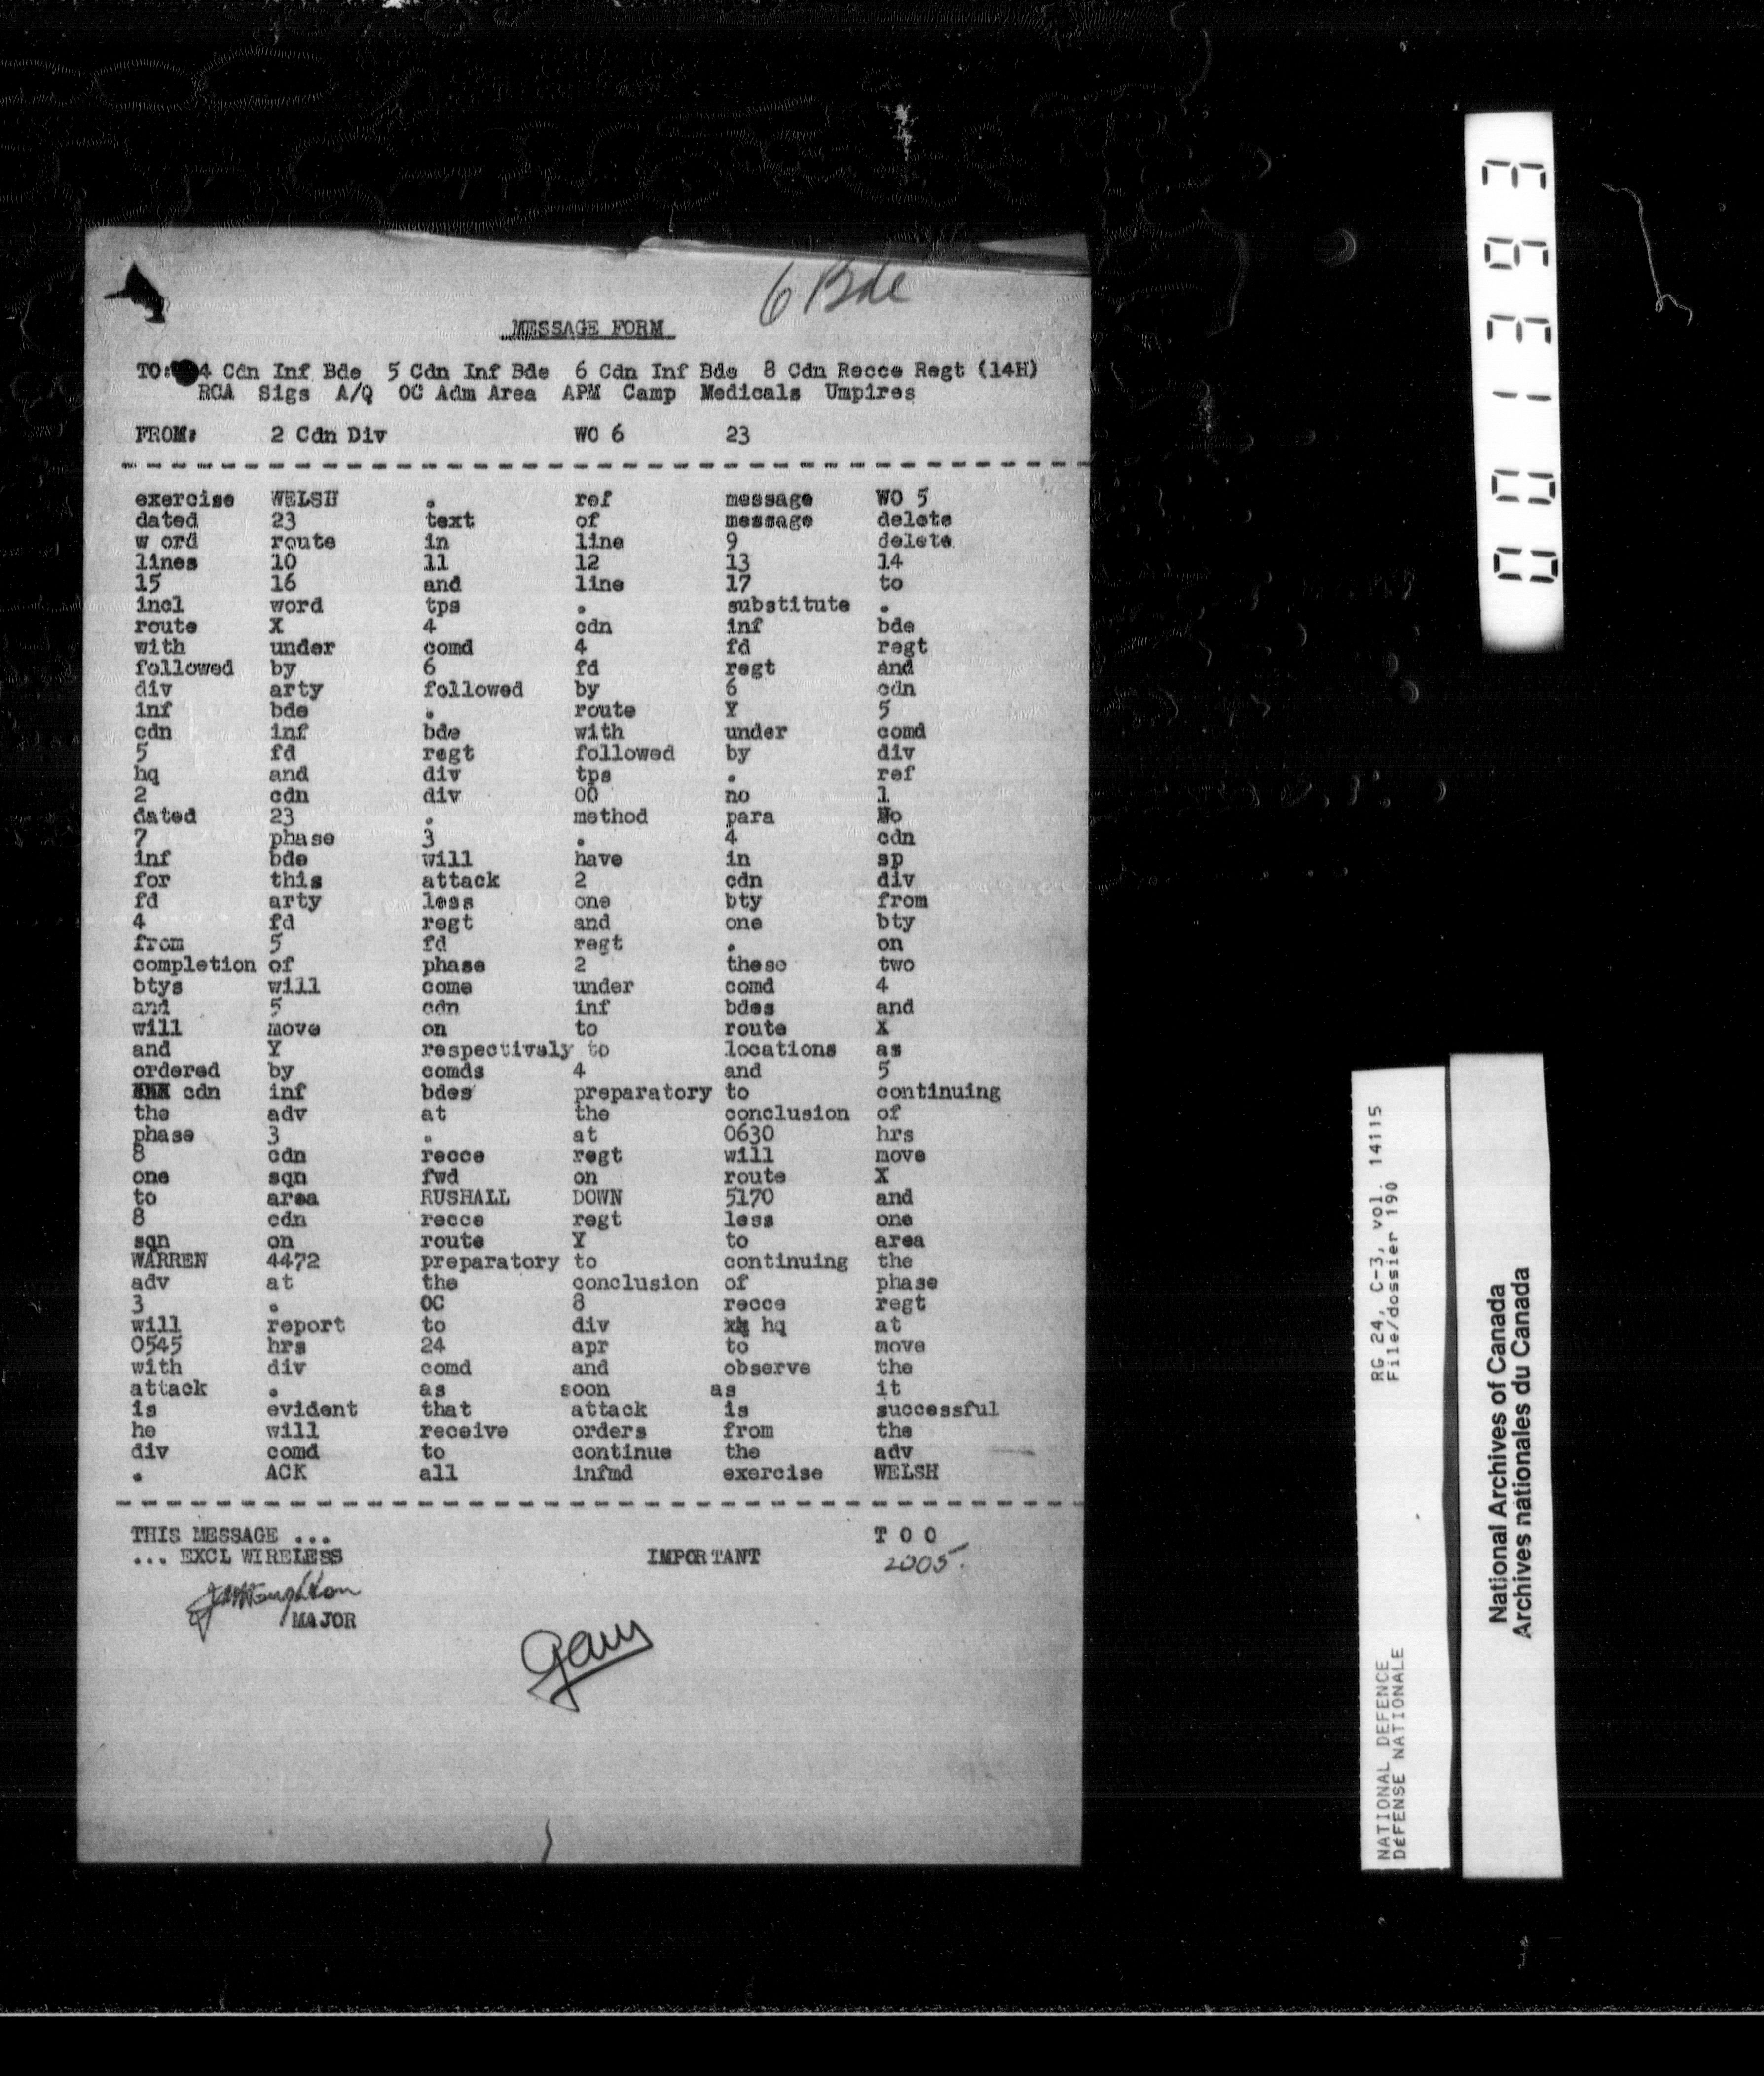 6 Bde
MESSAGE FORM
TO: 4 Cdn Inf Bde 5 Cdn Inf Bde 6 Cdn Inf Bde 8 Cdn Recce Regt (14H)
RCA Sigs A/Q OC Adm Area APM Camp Medicals Umpires
FROM: 2 Cdn Div WO 6 23
exercise WELSH . ref message WO 5
dated 23 text of message delete
w ord route in line 9 delete
lines 10 11 12 13 14
15 16 and line 17 to
incl word tps . substitute .
route X 4 cdn inf bde
with under comd 4 fd regt
followed by 6 fd regt and
div arty followed by 6 cdn
inf bde . route Y 5
cdn inf bde with under comd
5 fd regt followed by div
hq and div tps . ref
2 cdn div OO no 1
dated 23 . method para No
7 phase 3 . 4 cdn
inf bde will have in sp
for this attack 2 cdn div
fd arty less one bty from
4 fd regt and one bty
from 5 fd regt . on
completion of phase 2 these two
btys will come under comd 4
and 5 cdn inf bdes and
will move on to route X
and Y respectively to locations as
ordered by comds 4 and 5
cdn inf bdes preparatory to continuing
the adv at the conclusion of
phase 3 . at 0630 hrs
8 cdn recce regt will move
one sqn fwd on route X
to area RUSHALL DOWN 5170 and
8 cdn recce regt less one
sqn on route Y to area
WARREN 4472 preparatory to continuing the
adv at the conclusion of phase
3 . OC 8 recce regt
will report to div hq at
0545 hrs 24 apr to move
with div comd and observe the
attack . as soon as it
is evident that attack is successful
he will receive orders from the
div comd to continue the adv
. ACK all infmd exercise WELSH
THIS MESSAGE ... T O O
... EXCL WIRELESS IMPORTANT 2005.
MAJOR
001393
RG 24, C-3, vol. 14115
File/dossier 190
NATIONAL DEFENCE
DÉFENSE NATIONALE
National Archives of Canada
Archives nationales du Canada